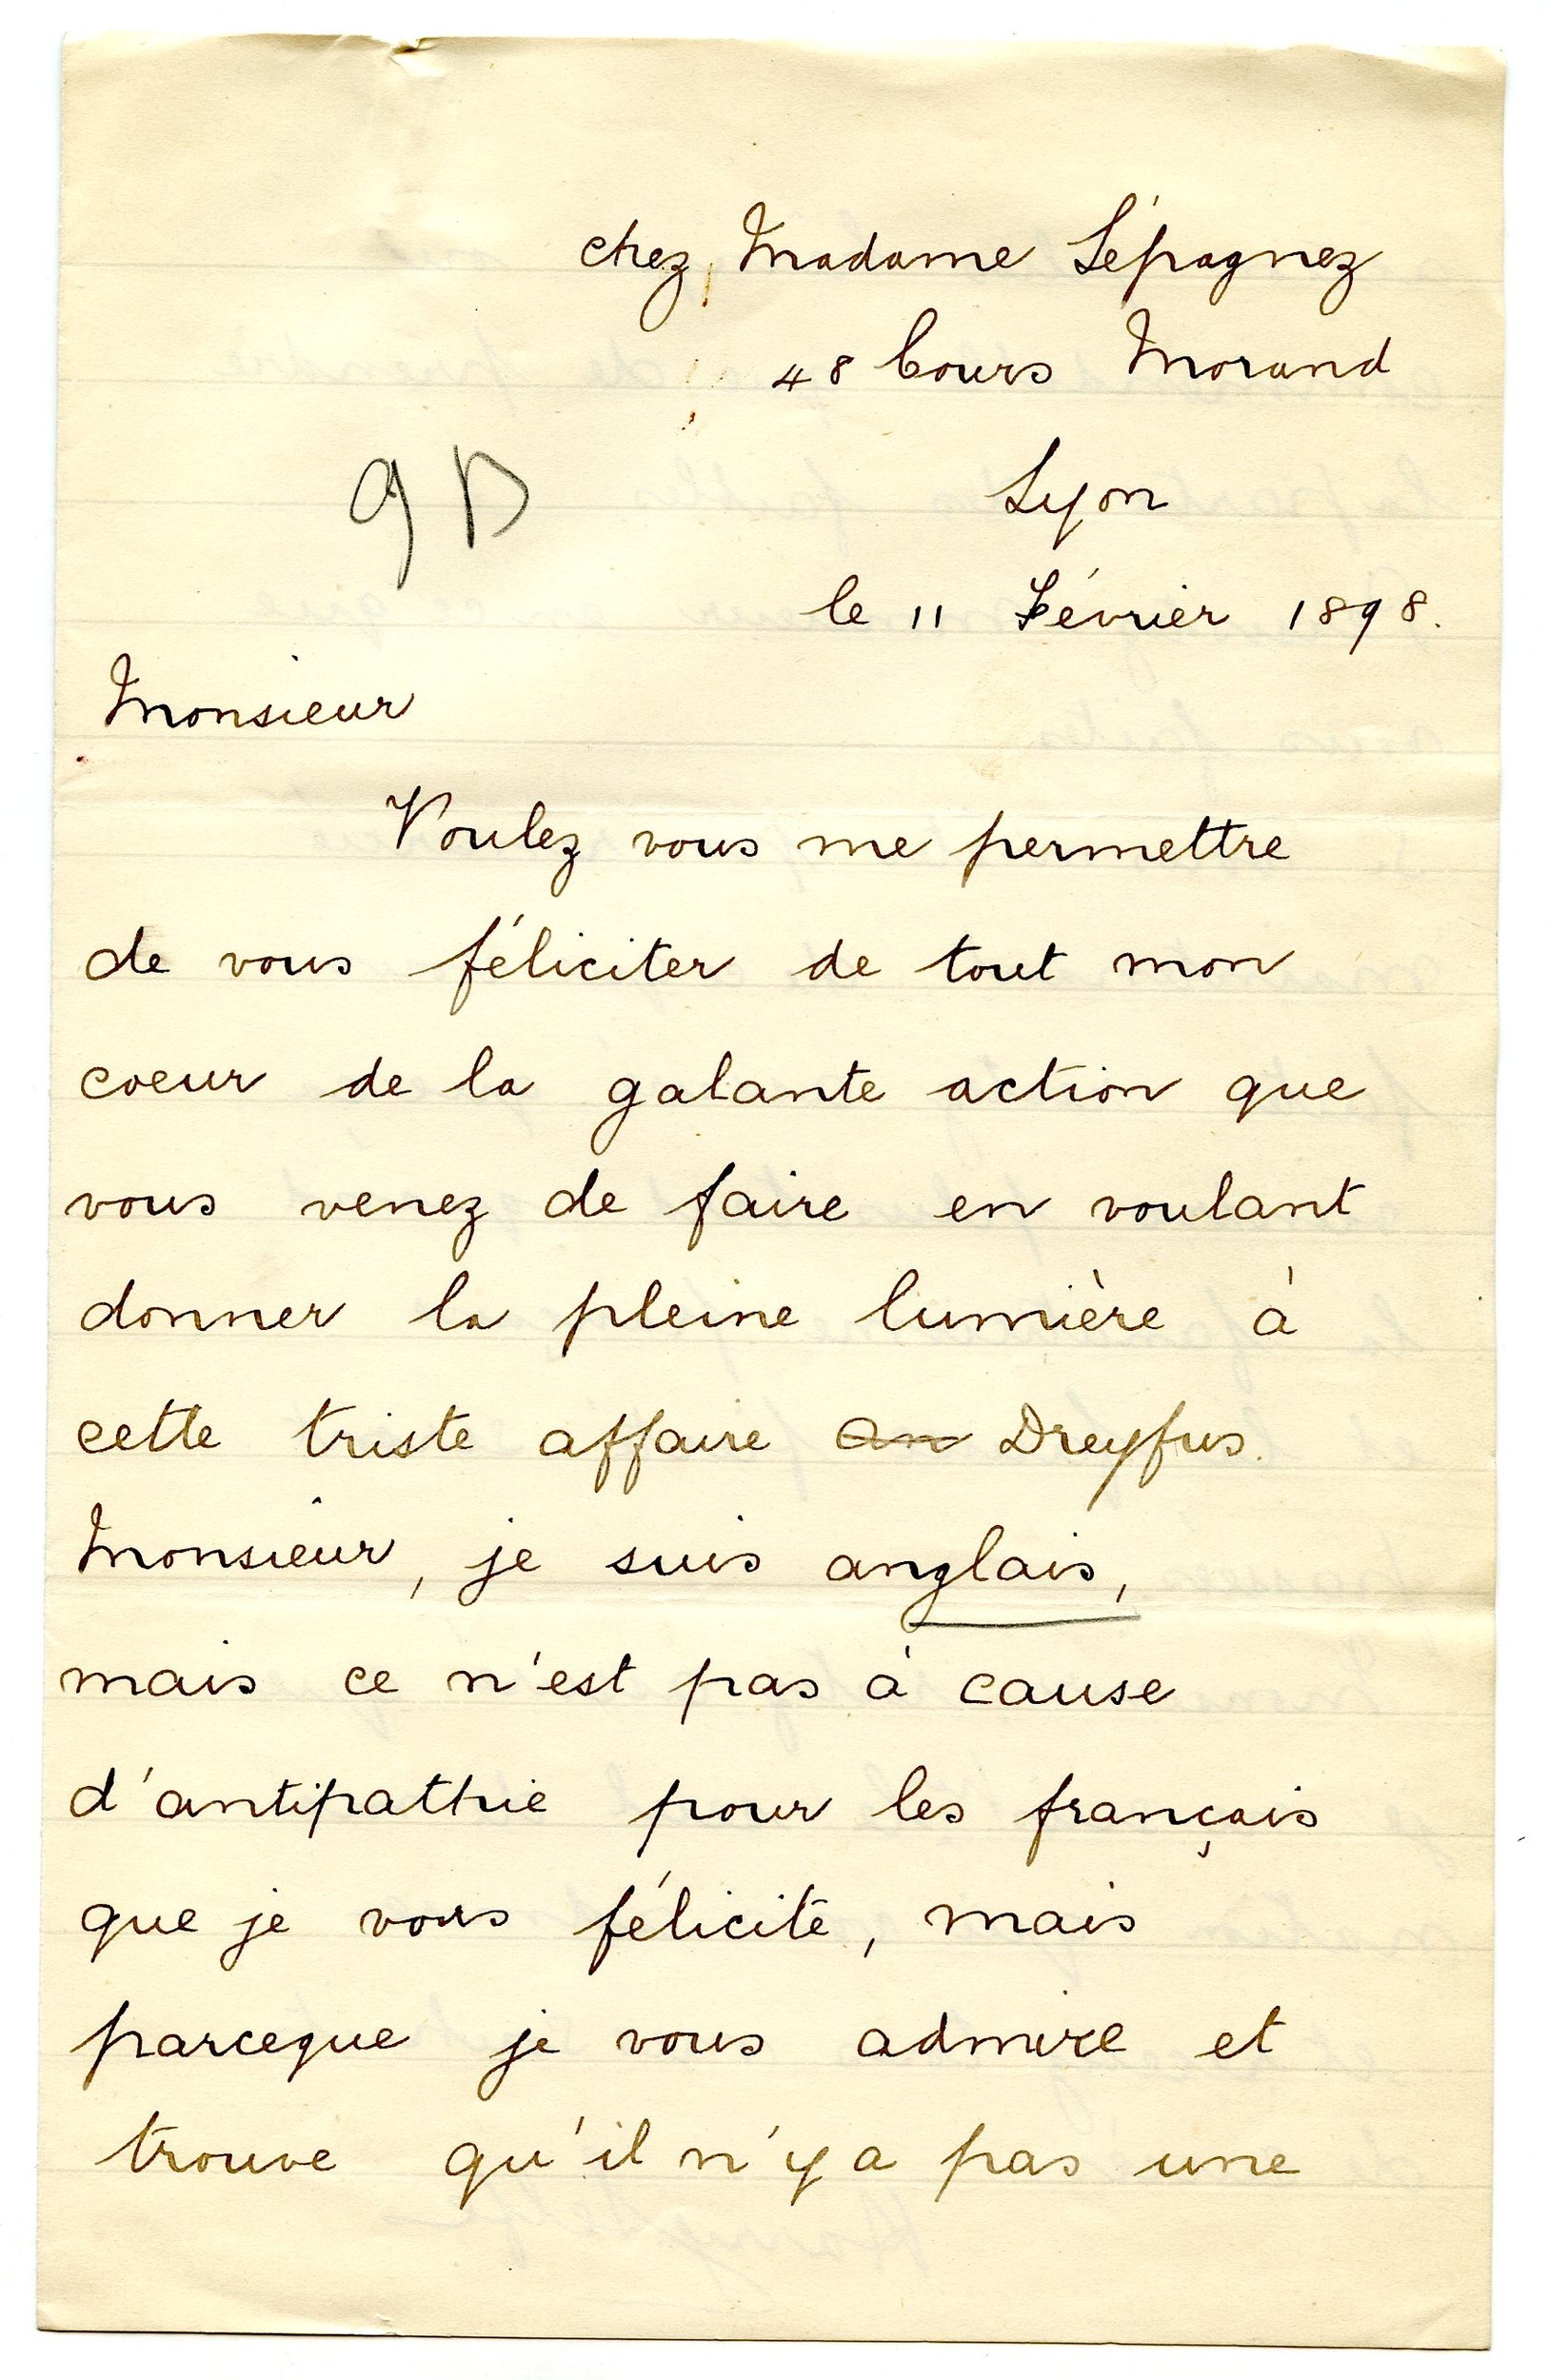 chez Madame Lépagnez
48 Cours Morand
9 D
Lyon
le 11 Février 1898.
Monsieur
Voulez vous me permettre
de vous féliciter de tout mon
coeur de la galante action que
vous venez de faire en voulant
donner la pleine lumière à
cette triste affaire an Dreyfus.
Monsieur, je suis anglais,
mais ce n'est pas à cause
d'antipathie pour les français
que je vous félicite, mais
parceque je vous admire et
trouve qu'il n'y a pas une